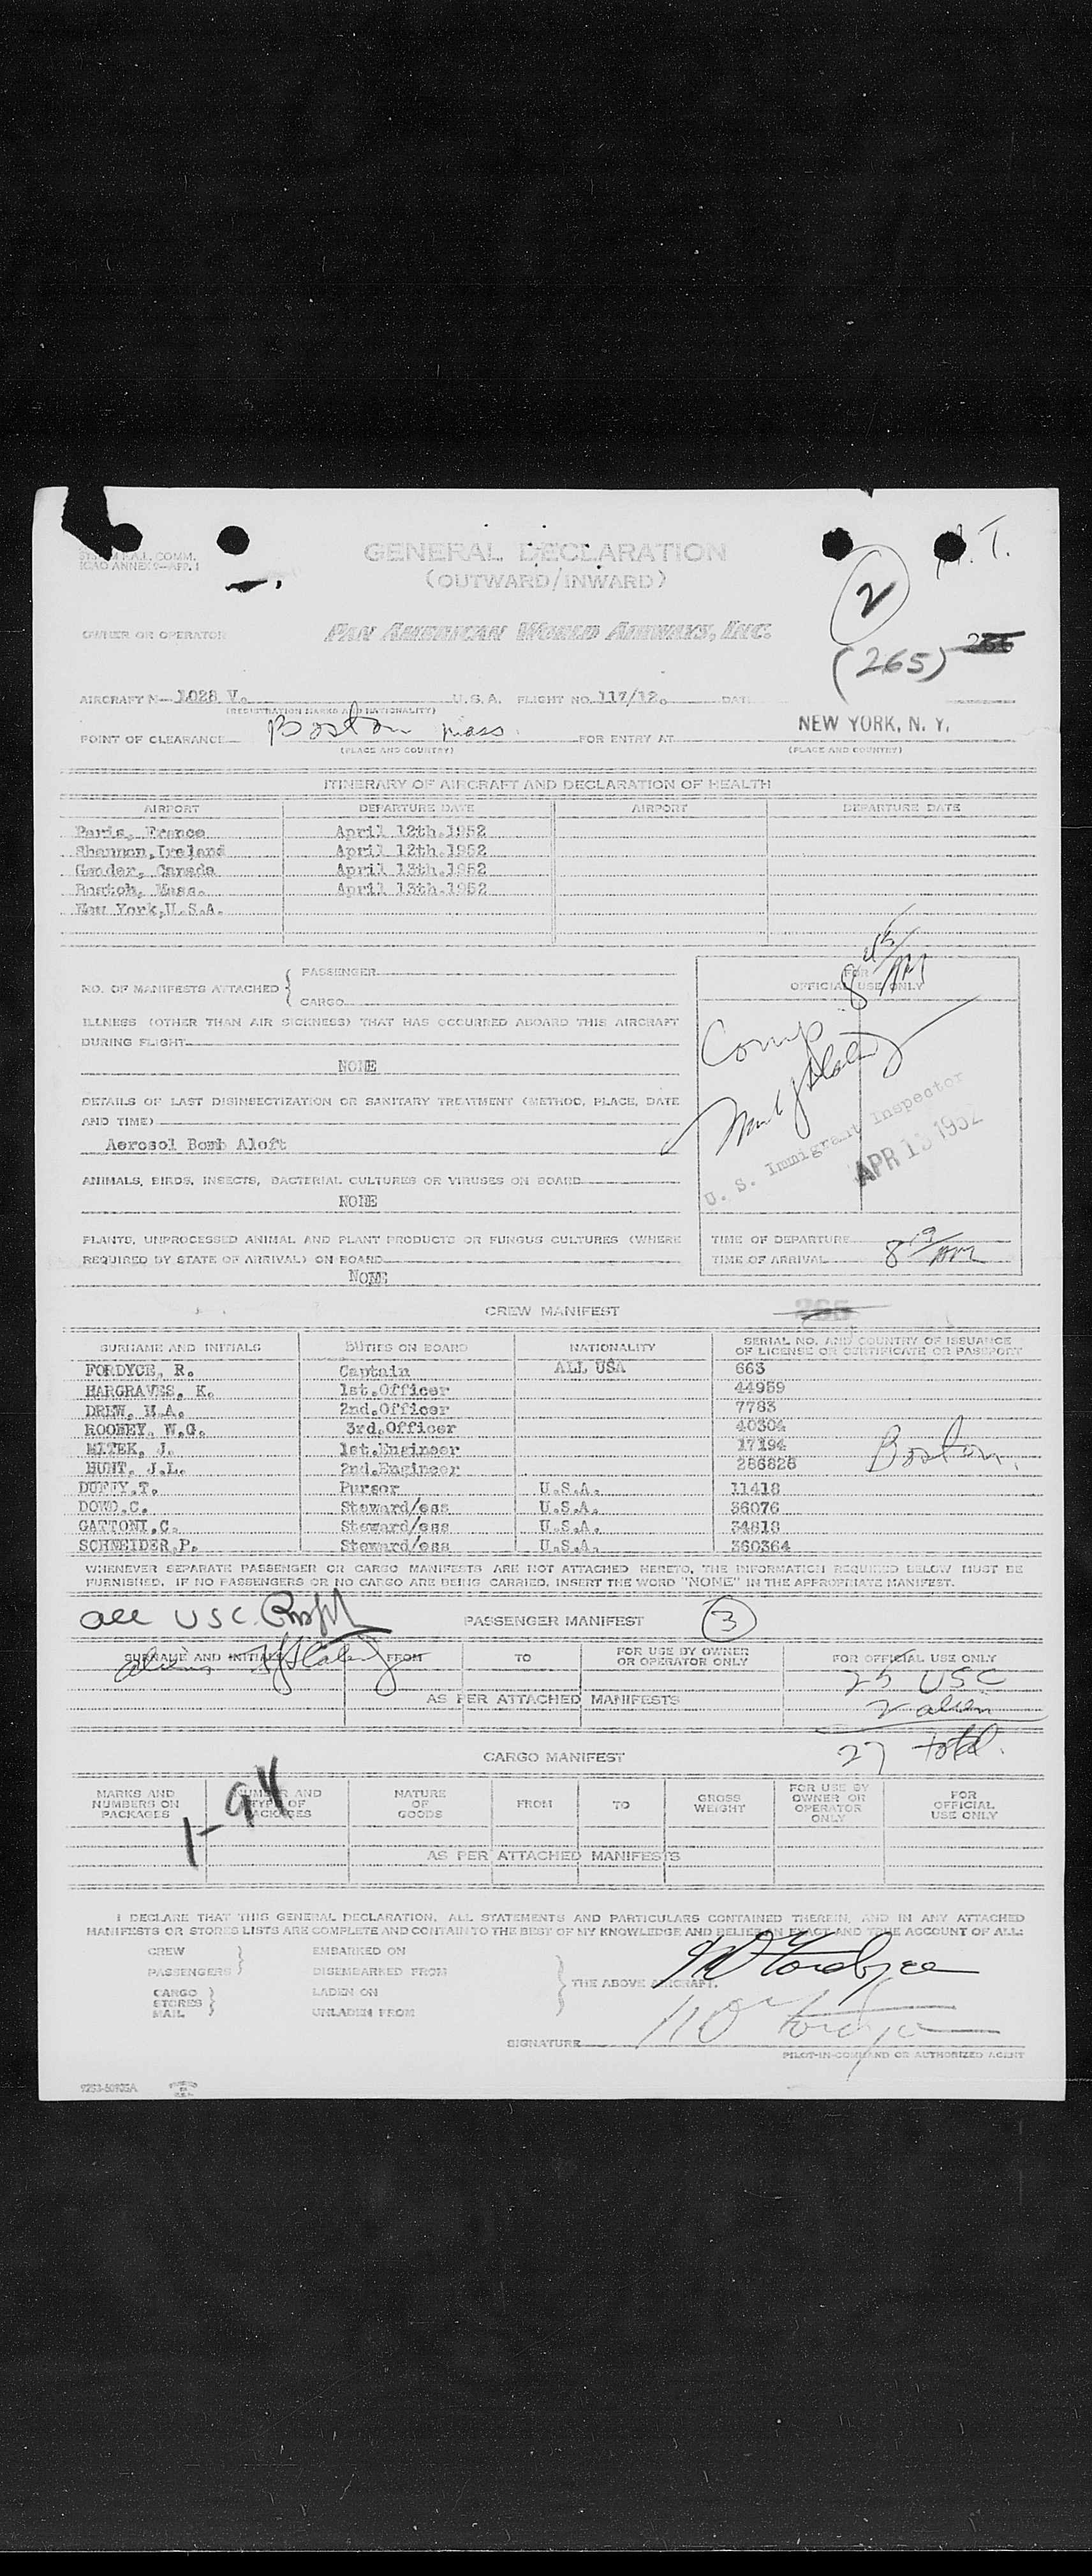 F.A.L. COMM.
ICAO ANNEX 9—APP. 1
GENERAL DECLARATION
(OUTWARD/INWARD)
T.
2
OWNER OR OPERATOR
PAN AMERICAN WORLD AIRWAYS, INC.
(265)
AIRCRAFT N— 1028 V. U.S.A. FLIGHT NO. 117/12. DATE
(REGISTRATION MARKS AND NATIONALITY)
POINT OF CLEARANCE Boston Mass. FOR ENTRY AT NEW YORK, N. Y.
(PLACE AND COUNTRY) (PLACE AND COUNTRY)
ITINERARY OF AIRCRAFT AND DECLARATION OF HEALTH
AIRPORT DEPARTURE DATE AIRPORT DEPARTURE DATE
Paris, France April 12th.1952
Shannon,Ireland April 12th.1952
Gander, Canada April 13th.1952
Boston, Mass. April 13th.1952
New York,U.S.A.
NO. OF MANIFESTS ATTACHED { PASSENGER
CARGO
FOR
OFFICIAL USE ONLY
8 45/AM
ILLNESS (OTHER THAN AIR SICKNESS) THAT HAS OCCURRED ABOARD THIS AIRCRAFT
DURING FLIGHT
NONE
Comp
DETAILS OF LAST DISINSECTIZATION OR SANITARY TREATMENT (METHOD, PLACE, DATE
AND TIME)
Aerosol Bomb Aloft
U. S. Immigrant Inspector
APR 13 1952
ANIMALS, BIRDS, INSECTS, BACTERIAL CULTURES OR VIRUSES ON BOARD
NONE
PLANTS, UNPROCESSED ANIMAL AND PLANT PRODUCTS OR FUNGUS CULTURES (WHERE
REQUIRED BY STATE OF ARRIVAL) ON BOARD
NONE
TIME OF DEPARTURE
TIME OF ARRIVAL 8 19/AM
CREW MANIFEST
265
SURNAME AND INITIALS DUTIES ON BOARD NATIONALITY SERIAL NO. AND COUNTRY OF ISSUANCE
OF LICENSE OR CERTIFICATE OR PASSPORT
FORDYCE, R. Captain ALL USA 663
HARGRAVES, K. 1st.Officer 44959
DREW, H.A. 2nd.Officer 7783
ROONEY, W.G. 3rd.Officer 40304
MITEK, J. 1st.Engineer 17194
HUNT, J.L. 2nd.Engineer 286828
Boston.
DUFFY.T. Purser U.S.A. 11418
DOWD.C. Steward/ess U.S.A. 36076
GATTONI.C. Steward/ess U.S.A. 34818
SCHNEIDER.P. Steward/ess U.S.A. 360364
WHENEVER SEPARATE PASSENGER OR CARGO MANIFESTS ARE NOT ATTACHED HERETO, THE INFORMATION REQUIRED BELOW MUST BE
FURNISHED. IF NO PASSENGERS OR NO CARGO ARE BEING CARRIED, INSERT THE WORD "NONE" IN THE APPROPRIATE MANIFEST.
all USC
PASSENGER MANIFEST 3
SURNAME AND INITIALS FROM TO FOR USE BY OWNER
OR OPERATOR ONLY FOR OFFICIAL USE ONLY
aliens
25 USC
AS PER ATTACHED MANIFESTS
2 alien
27 total.
CARGO MANIFEST
MARKS AND
NUMBERS ON
PACKAGES NUMBER AND
TYPE OF
PACKAGES NATURE
OF
GOODS FROM TO GROSS
WEIGHT FOR USE BY
OWNER OR
OPERATOR
ONLY FOR
OFFICIAL
USE ONLY
1-94
AS PER ATTACHED MANIFESTS
I DECLARE THAT THIS GENERAL DECLARATION, ALL STATEMENTS AND PARTICULARS CONTAINED THEREIN, AND IN ANY ATTACHED
MANIFESTS OR STORES LISTS ARE COMPLETE AND CONTAIN TO THE BEST OF MY KNOWLEDGE AND BELIEF AN EXACT AND TRUE ACCOUNT OF ALL:
CREW EMBARKED ON
PASSENGERS DISEMBARKED FROM
THE ABOVE AIRCRAFT.
CARGO
STORES
MAIL
LADEN ON
UNLADEN FROM
SIGNATURE
PILOT-IN-COMMAND OR AUTHORIZED AGENT